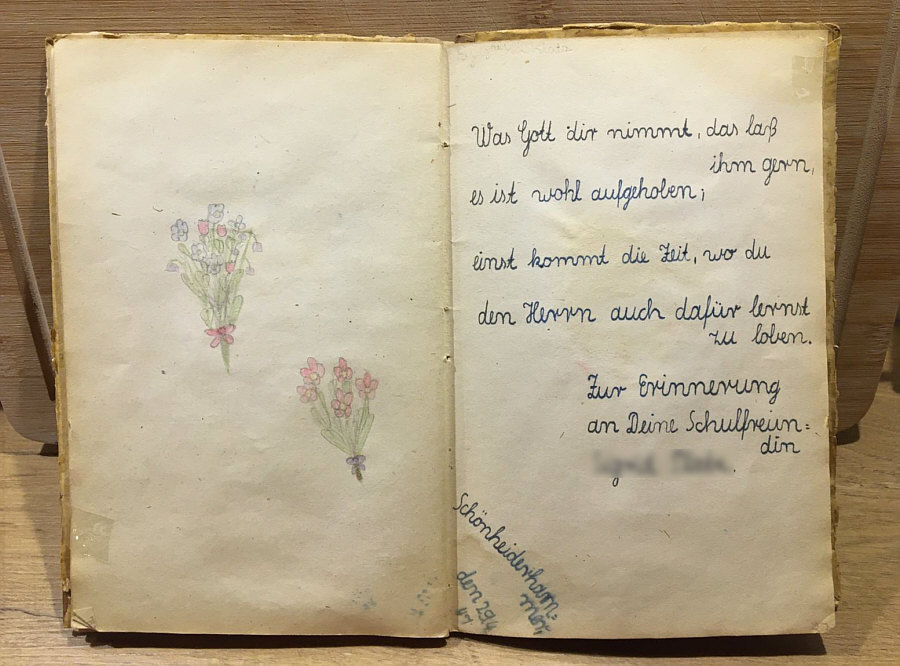 Was Gott dir nimmt, das laß
ihm gern,
es ist wohl aufgehoben;
einst kommt die Zeit, wo du
den Herrn auch dafür lernst
zu loben.
Zur Erinnerung
an Deine Schulfreun=
din
Schönheiderham=
mer,
den 29.4.